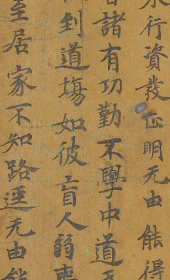 行資發正明无由能得
諸有功勤不學中道
到道場如彼盲人弱喪
至居家不知路逕无由能